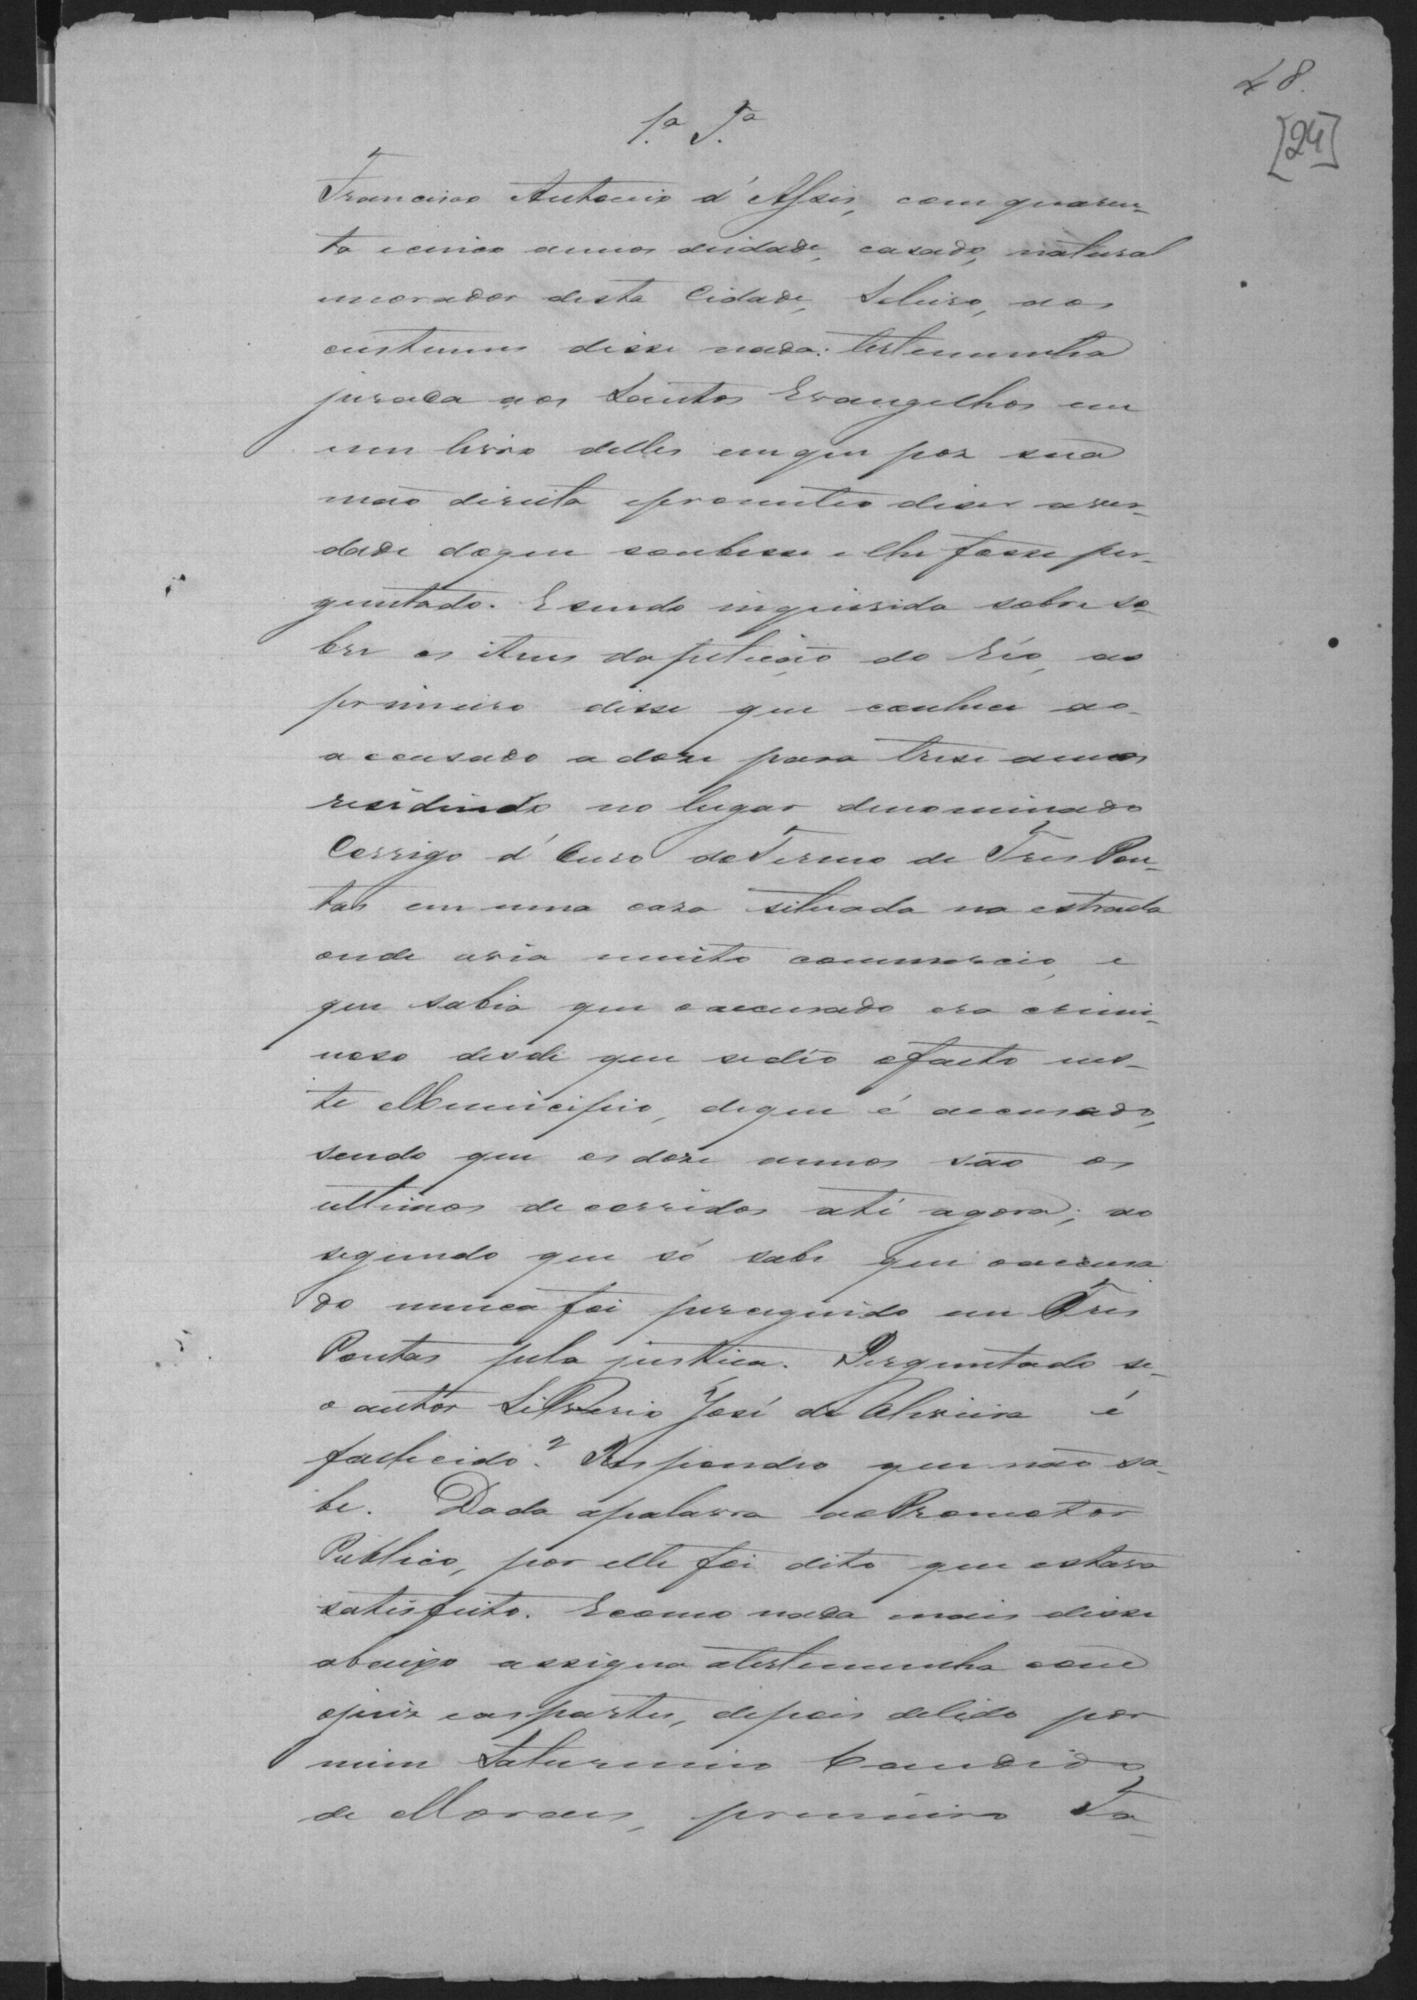 48.
[24]
1.ª T.ª
Francisco Antonio d'Assis, com quaren-
ta e cinco annos deidade, casado, natural
morador desta Cidade, Seleiro, aos
custumes disse nada: testemunha
jurada aos Santos Evangelhos em
um livro delles emque poz sua
mão direita eprometteo diser aver-
dade doque soubesse e lhe fosse per-
guntado. E sendo inquirida sobre so-
bre os itens da petição do Réo, ao
primeiro disse que conhece ao
accusado a doze para trese annos
residindo no lugar denominado
Corrigo d'Ouro do Termo de Tres Pon-
tas em uma caza situada na estrada
onde avia muito commercio, e
que sabia que oaccusado era crimi-
noso desde que sedéo ofacto nes-
te Municipio, deque é accusado,
sendo que os doze annos são os
ultimos decorridos até agora; ao
segundo que só sabe que oaccusa
do nunca foi perseguido em Tres
Pontas pela justica. Perguntado se-
o autor Silverio José de Oliveira é
fallecido? Respondeo que não sa-
be. Dada apalavra aoPromotor
Publico, por elle foi dito que estava
satisfeito. Ecomo nada mais disse
abaixo assigna atestemunha com
ojuiz easpartes, depois delido por
mim Saturnino Candido
de Moraes, primeiro Ta-